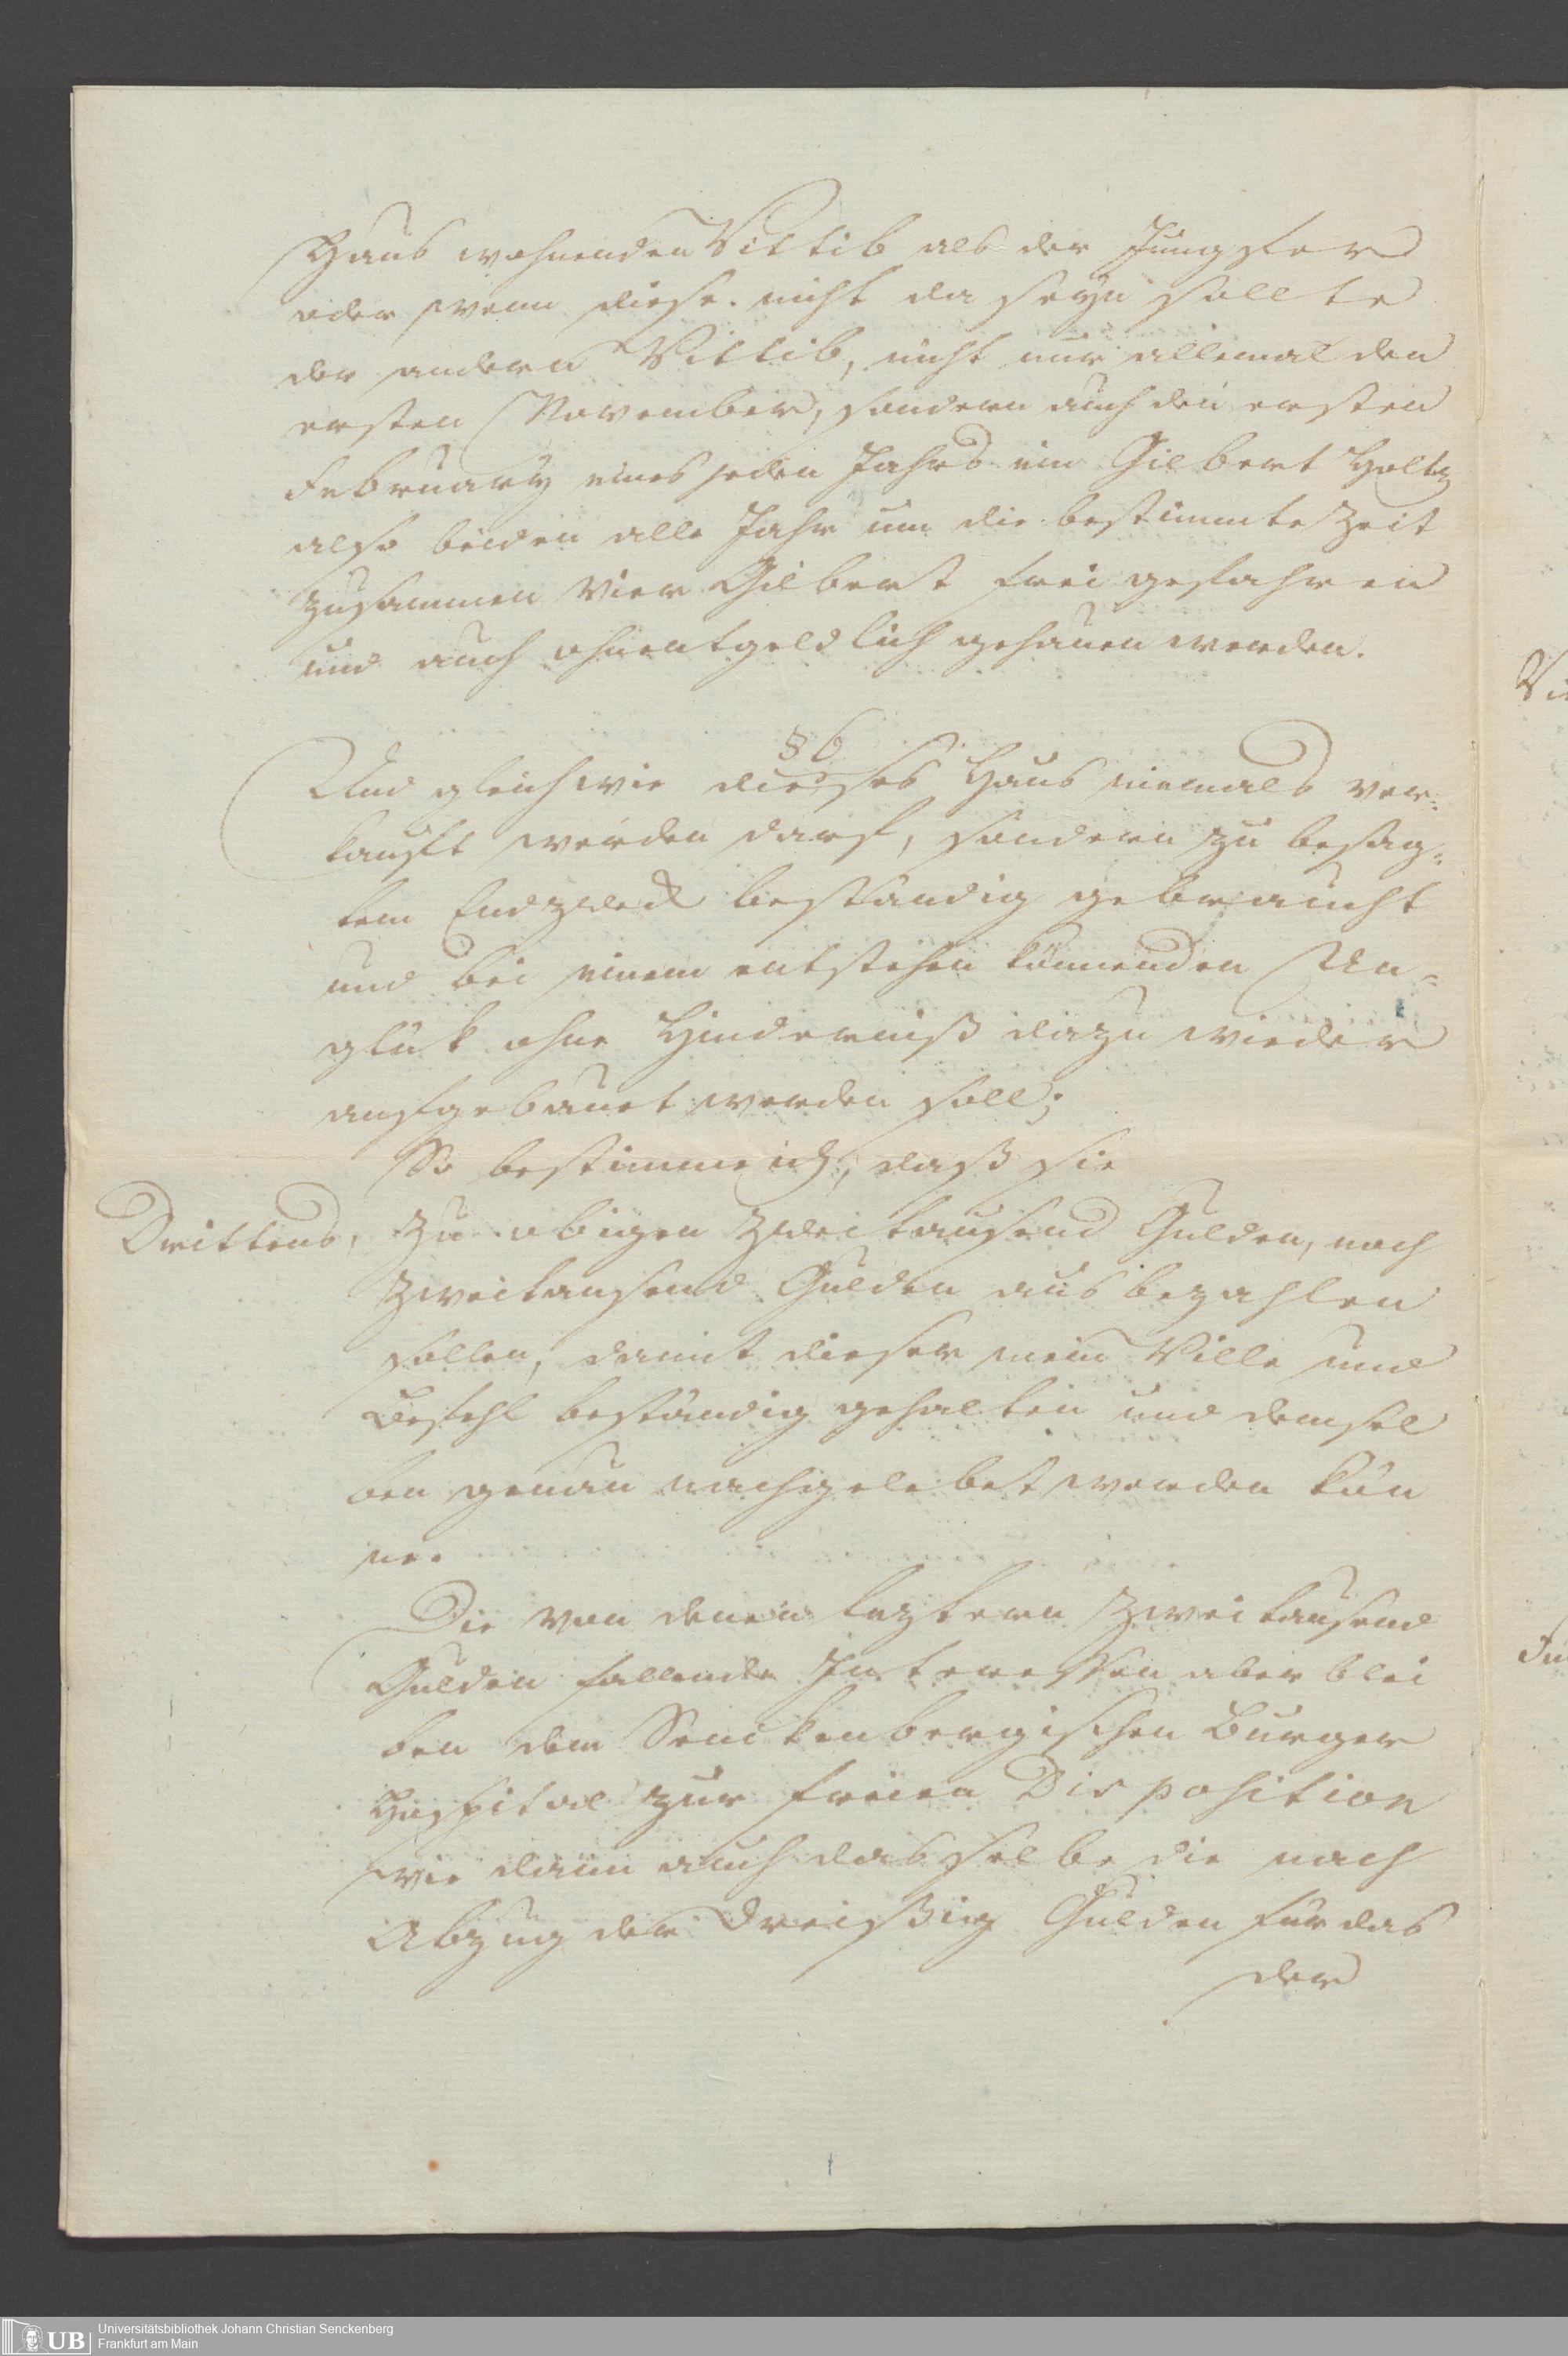 Haus wohnenden Wittib als der Jungfer
oder wenn diese nicht da seyn sollte
der andern Wittib, nicht nur allemal den
ersten November, sondern auch den ersten
February eines jeden Jahrs ein Gilbert Holtz
also beiden alle Jahr um die bestimmte Zeit
zusammen vier Gilbert frei gefahren
und auch ohnentgeldlich gehauen werden.
§ 6
Und gleichwie dieses Haus niemals ver-
kauft werden darf, sondern zu besag-
tem Endzweck beständig gebraucht
und bei einem entstehen könnenden Un-
glük ohne Hinderniß dazu wieder
aufgebauet werden soll;
So bestimme ich, daß sie
Drittens, zu obigen zweitausend Gulden, noch
zweitausend Gulden aus bezahlen
sollen, damit dieser mein Wille und
Befehl beständig gehalten und demsel
ben genau nachgelebet werden kön
ne.
Die von denen leztern zweitausend
Gulden fallende Interessen aber blei
ben dem Senckenbergischen Burger
Hospital zur freien Disposition
wie dann auch dasselbe die nach
Abzug der dreißig Gulden für das
der
Vi
UB Universitätsbibliothek Johann Christian Senckenberg
Frankfurt am Main